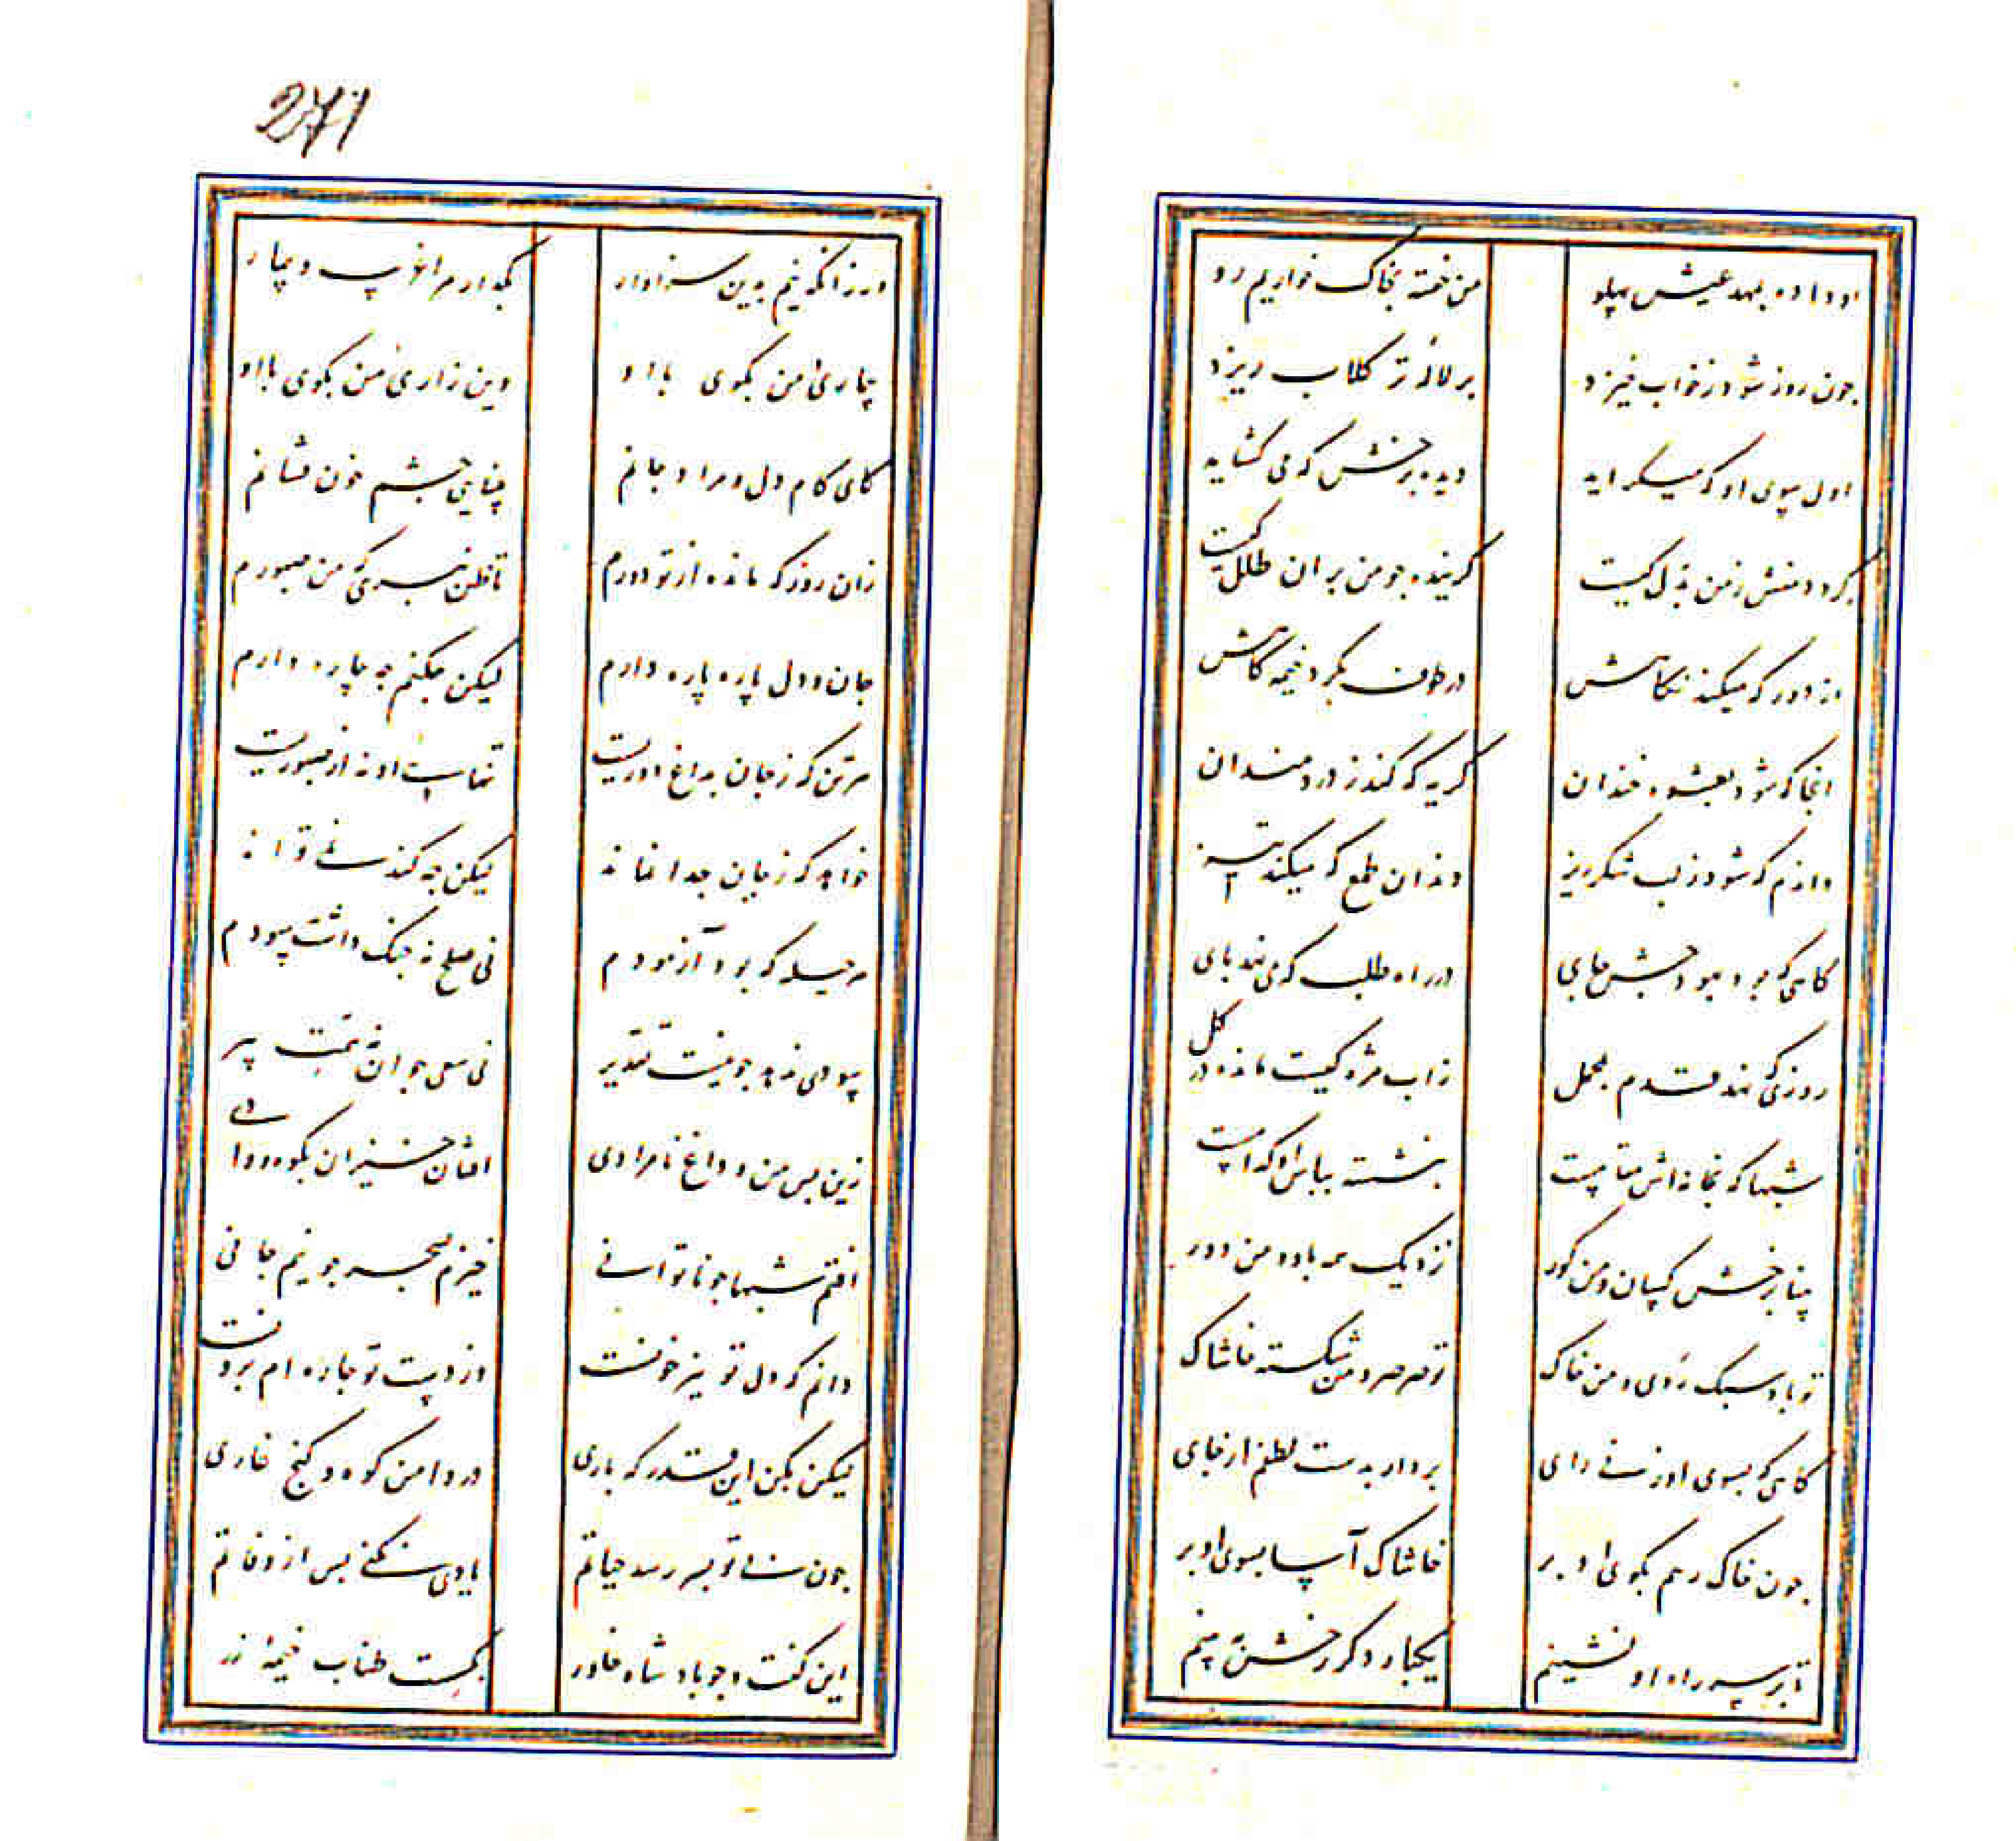 او داده بمهد عیش پهلو من خفته بخاک خواریم رو
چون روز شود ز خواب خیزد بر لاله تر کلاب ریزد
اول بسوی او که میکراید دیده برخش که می کشاید
کرد دمنش ز من بدل کیست کرینده چو من بران طلل کیست
از دور که میکند نکاهش در طوف بکرد خیمه کاهش
انجا که شود بعشوه خندان کریه که کند ز دردمندان
واندم که شود ز لب شکرریز دندان طمع که میکند تیز
کاهی که برد بعود جنبش جای در راه طلب که می نهد پای
روزی که نهد قدم بمحمل زاب مژه کیست مانده در کل
شبها که بخانه اش مقامست بنشسته بپاس او کدامست
بینا برخش کسان و من کور نزدیک همه باو و من دور
تو باد سبک روی و من خاک تو صرصر و من شکسته خاشاک
کاهی که بسوی او زنی رای بردار بدست لطفم از جای
چون خاک رهم بکوی او بر خاشاک آسا بسوی او بر
تا بر سر راه او نشینم یکبار دکر رخش به بینم
271
ور زانکه نیم بدین سزاوار بکذار مرا غریب و بیمار
بیماری من بکوی با او وین زاری من بکوی با او
کای کام دل و مراد جانم بینایی چشم خون فشانم
زان روز که مانده از تو دورم تا ظن نبری که من صبورم
جان و دل پاره پاره دارم لیکن چکنم چه چاره دارم
هر تن که ز جان بداغ دوریست تنهاست او نه از صبوریست
خواهد که ز جان جدا نماند لیکن چه کند نمی تواند
هر حیله که بود آزمودم نی صلح نه جنک داشت سودم
سودی ندهد چو نیست تقدیر نی سعی جوان نه همت پیر
زین پس من و داغ نامرادی افتان خیزان بکوه و وادی
افتم شبها چو ناتوانی خیزم سحر چو نیم جانی
دانم که دل تو نیز خونست درد تو چاره ام برونست
لیکن بکن این قدر که باری در دامن کوه و کنج غاری
چون بی تو بسر رسد حیاتم یادی بکنی پس از وفاتم
این کفت و چو باد شاه خاور بکسست طناب خیمه زر